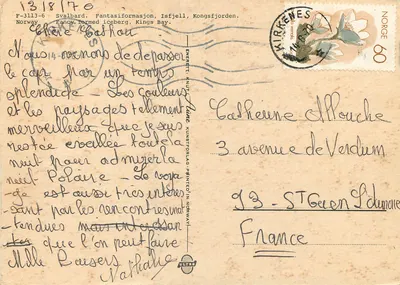 13/8/70
P-3113-6 Svalbard. Fantasiformasjon, isfjell, Kongsfjorden.
Norway. Fancy formed iceberg, Kings Bay.
Chère
Nous venons de dépasser
le cap par un temps
splendide. Les couleurs
et les paysages tellement
merveilleux que je suis
restée éveillée toute la
nuit pour admirer la
nuit Polaire. Le voya-
ge est aussi très intéres
sant par les rencontres inat-
tendues
que l'on peut faire
Mille Baisers
Nathalie
KIRKENES
NORGE
60
Catherine Allouche
3 avenue de Verdun
93 - St
France